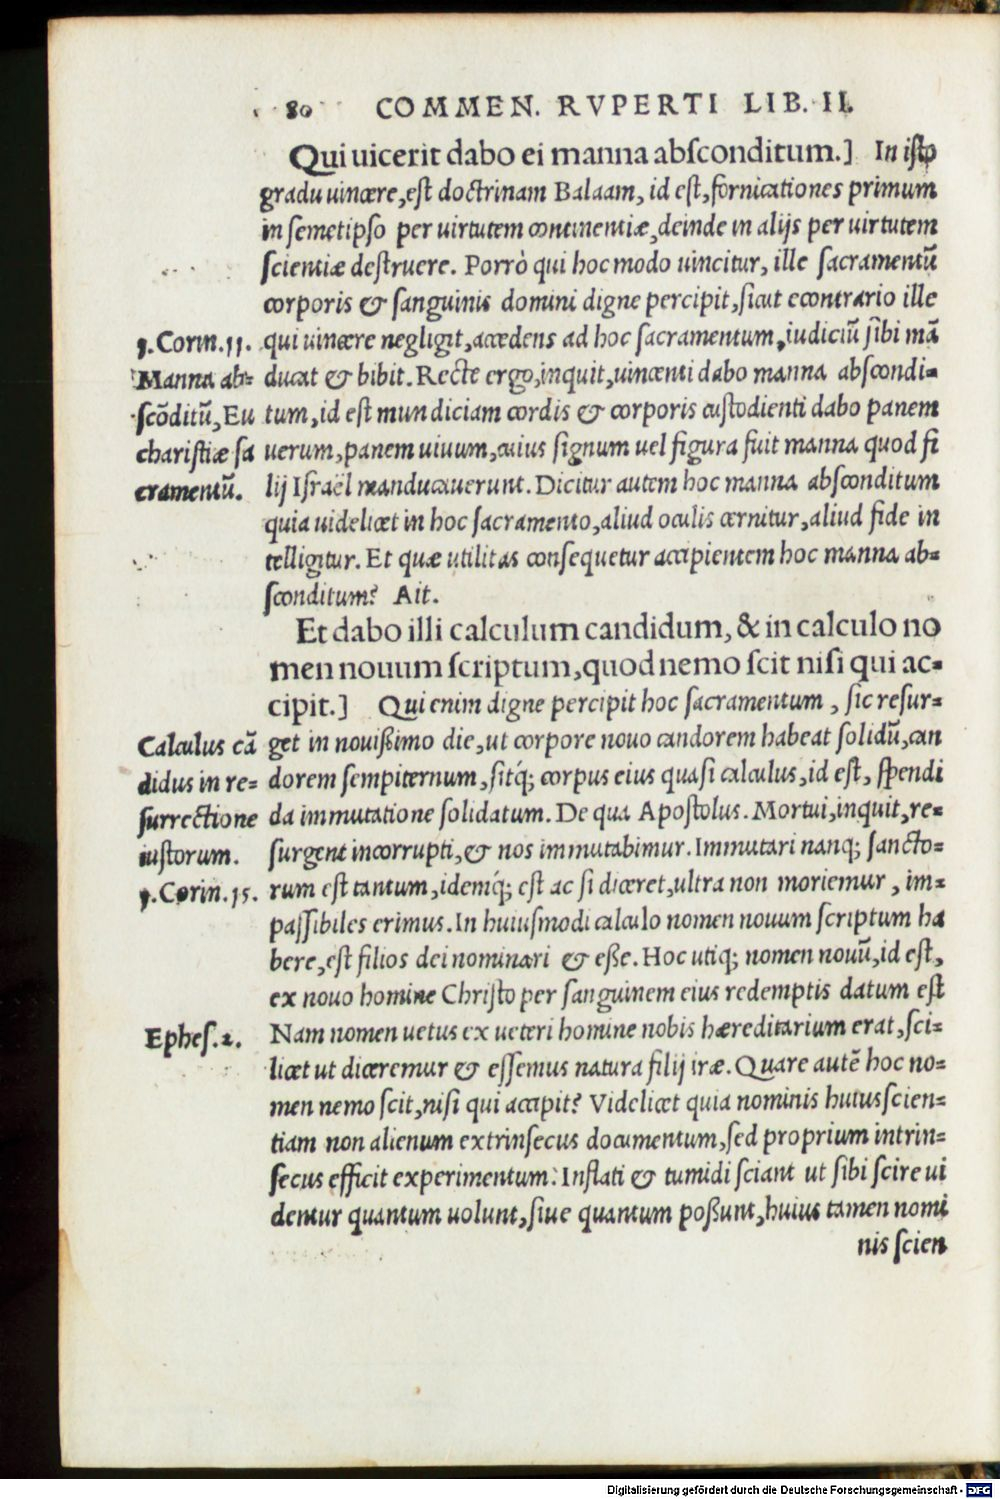 80 COMMEN. RVPERTI LIB. II.
Qui uicerit dabo ei manna absconditum.] In isto
gradu uincere, est doctrinam Balaam, id est, fornicationes primum
in semetipso per uirtutem continentiæ, deinde in alijs per uirtutem
scientiæ destruere. Porrò qui hoc modo uincitur, ille sacramentũ
corporis & sanguinis domini digne percipit, sicut econtrario ille
qui uincere negligit, accedens ad hoc sacramentum, iudiciũ sibi mã
ducat & bibit. Recte ergo, inquit, uincenti dabo manna abscondi-
tum, id est mundiciam cordis & corporis custodienti dabo panem
uerum, panem uiuum, cuius signum uel figura fuit manna quod fi
lij Israël manducauerunt. Dicitur autem hoc manna absconditum
quia uidelicet in hoc sacramento, aliud oculis cernitur, aliud fide in
telligitur. Et quæ utilitas consequetur accipientem hoc manna ab-
sconditum? Ait.
1. Corin. 11.
Manna ab-
scõditũ, Eu
charistiæ sa
cramentũ.
Et dabo illi calculum candidum, & in calculo no
men nouum scriptum, quod nemo scit nisi qui ac-
cipit.] Qui enim digne percipit hoc sacramentum, sic resur-
get in nouißimo die, ut corpore nouo candorem habeat solidũ, can
dorem sempiternum, sitq́; corpus eius quasi calculus, id est, splendi
da immutatione solidatum. De qua Apostolus. Mortui, inquit, re-
surgent incorrupti, & nos immutabimur. Immutari nanq; sancto-
rum est tantum, idemq́; est ac si diceret, ultra non moriemur, im-
passibiles erimus. In huiusmodi calculo nomen nouum scriptum ha
bere, est filios dei nominari & eße. Hoc utiq; nomen nouũ, id est,
ex nouo homine Christo per sanguinem eius redemptis datum est
Nam nomen uetus ex ueteri homine nobis hæreditarium erat, sci-
licet ut diceremur & essemus natura filij iræ. Quare autẽ hoc no-
men nemo scit, nisi qui accipit? Videlicet quia nominis huius scien-
tiam non alienum extrinsecus documentum, sed proprium intrin-
secus efficit experimentum. Inflati & tumidi sciant ut sibi scire ui
dentur quantum uolunt, siue quantum poßunt, huius tamen nomi
nis scien
Calculus cã
didus in re-
surrectione
iustorum.
1. Corin. 15.
Ephes. 2.
Digitalisierung gefördert durch die Deutsche Forschungsgemeinschaft - DFG